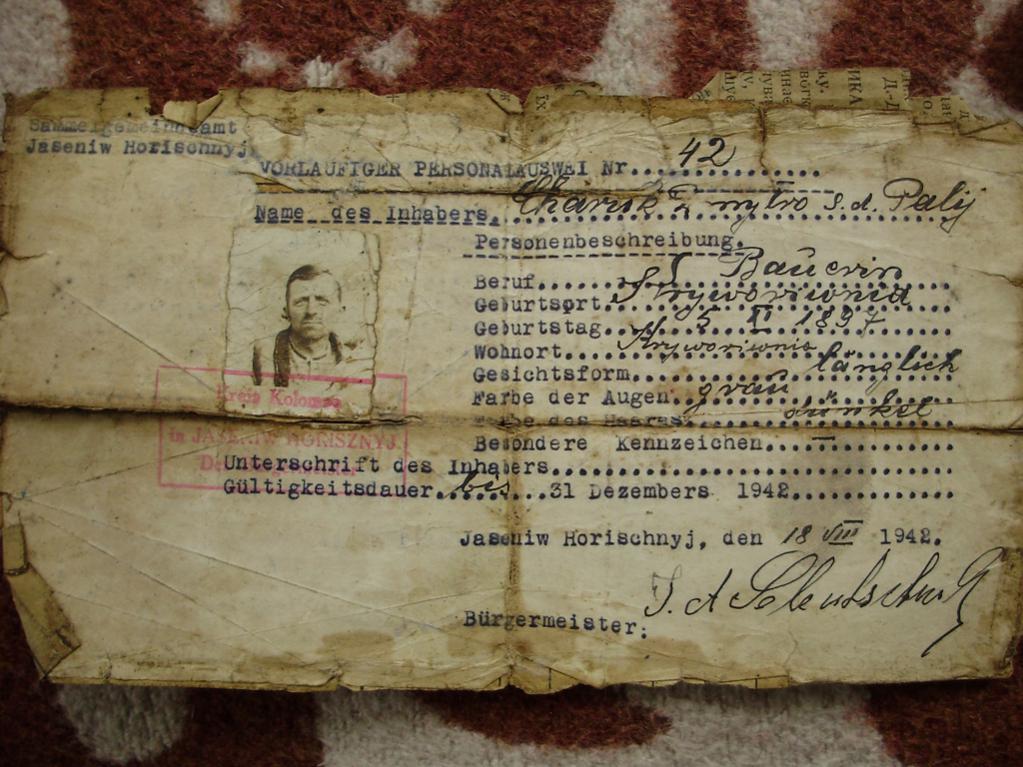 Sammelgemeindeamt
Jaseniw Horischnyj
VORLÄUFIGER PERSONALAUSWEI Nr. 42
Name des Inhabers. s.d. Palij
Personenbeschreibung.
Beruf Bauerin
Geburtsort Kryworiwnia
Geburtstag 5 XI 1897
Wohnort Kryworiwnia
Gesichtsform länglich
Farbe der Augen grau
Farbe des Haares dunkel
Besondere Kennzeichen —
Kreis Kolomea
in JASENIW HORISZNYJ
Unterschrift des Inhabers
Gültigkeitsdauer bis 31 Dezembers 1942
Jaseniw Horischnyj, den 18 VIII 1942.
Bürgermeister: